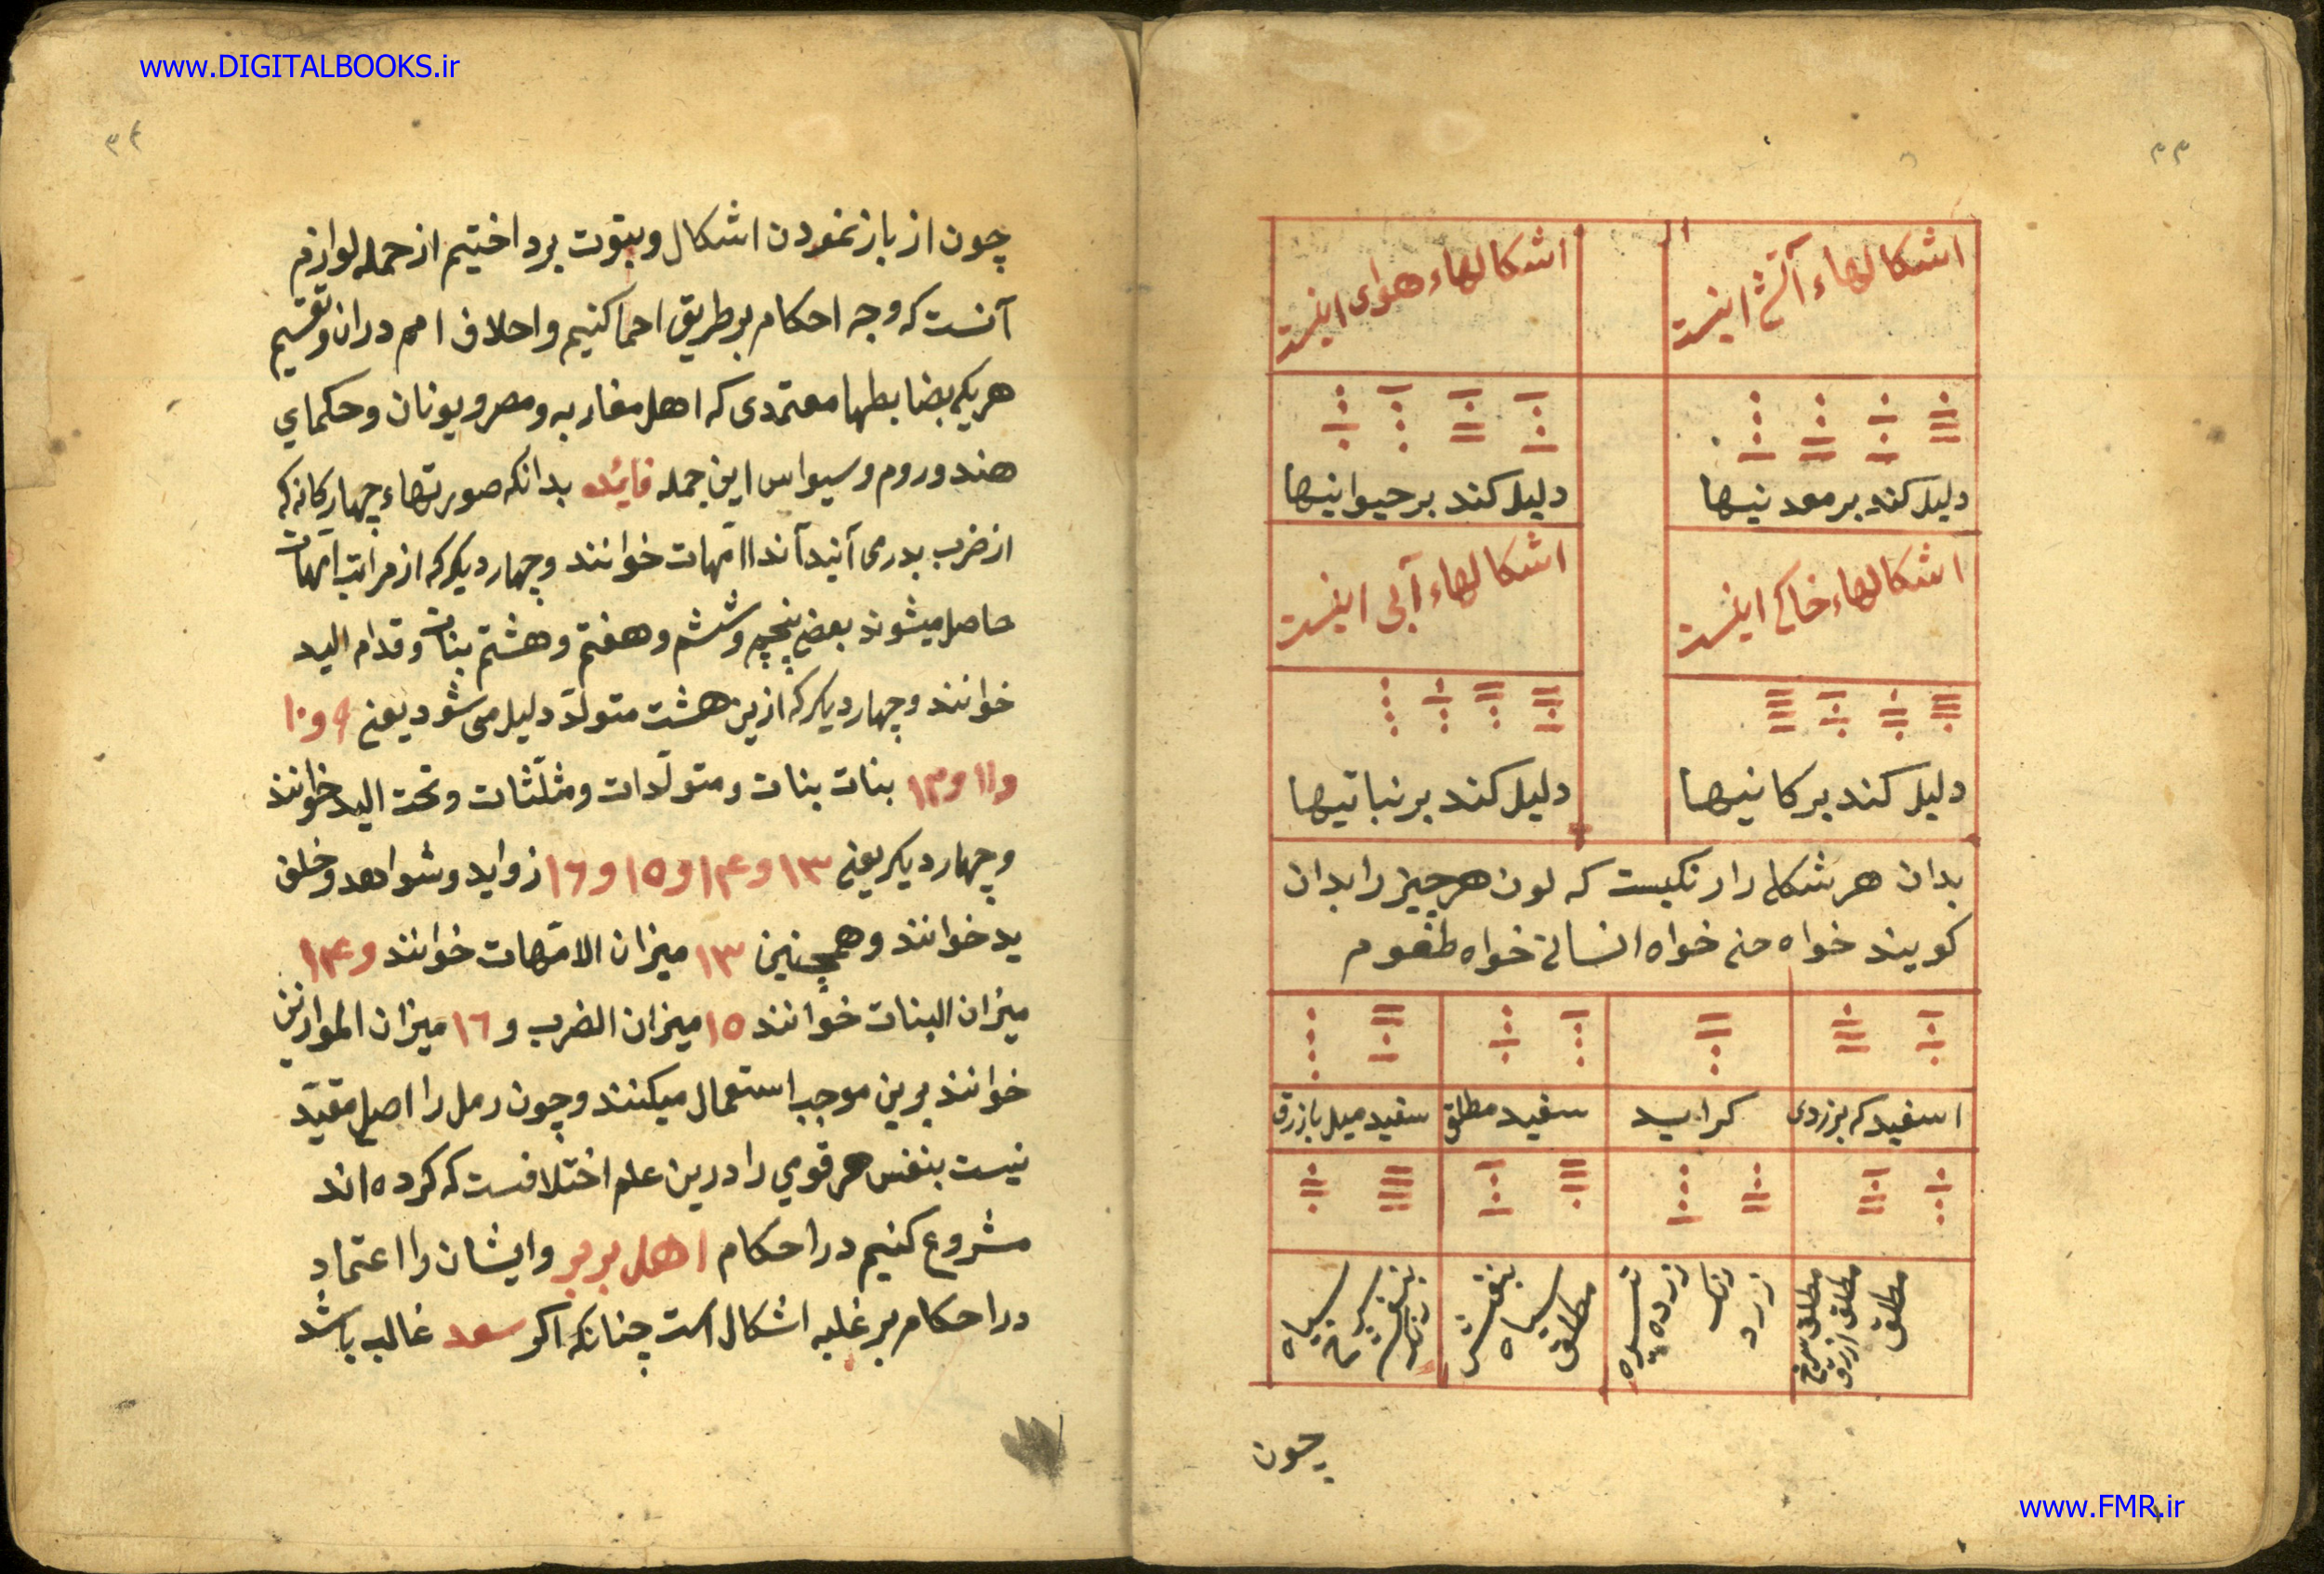 www.DIGITALBOOKS.ir
۳۳
اشکالهاء آتشی اینست
اشکالهاء هوای اینست
دلیل کند بر معدنیها
دلیل کند بر حیوانیها
اشکالهاء خاکی اینست
اشکالهاء آبی اینست
دلیل کند بر کانیها
دلیل کند بر نباتیها
بدان هر شکلی را رنگیست که لون هر چیز را بدان
کویند خواه جنی خواه انسانی خواه طعوم
اسفید که بزردی
سفید مطلق
سفید میل بازرق
مطلق
مطلق ازرق
مطلق سرخ
زرد
رنک
زرده
تیره
مطلق
سیاه
بنفش
بنفش
سرخ
سیاه
چون
۳۴
چون از باز نمودن اشکال و بیوت برداختیم از جمله لوازم
آنست که وجه احکام بر طریق احما کنیم و احلاف امم در ان و تقسیم
هر یکی بضابطها معتمدی که اهل مغاربه و مصر و یونان و حکمای
هند و روم و سیواس این جمله فایده بدانکه صورتهاء چهارکانه که
از ضرب بدر می آیند آنداا امّهات خوانند و چهار دیکر که از مراتب امّهات
حاصل میشوند بعضی پنجم و ششم و هفتم و هشتم بنات و قدام الید
خوانند و چهار دیکر که ازین هشت متولّد دلیل می شود یعنی ۹ و ۱۰
و ۱۱ و ۱۲ بنات بنات و متولّدات و مثلّثات و تحت الید خوانند
و چهار دیکر یعنی ۱۳ و ۱۴ و ۱۵ و ۱۶ زواید و شواهد و خلف
ید خوانند و همچنین ۱۳ میزان الامّهات خوانند و ۱۴
میزان البنات خوانند ۱۵ میزان الضرب و ۱۶ میزان الموازین
خوانند برین موجب استعمال میکنند و چون رمل را اصلی مقیّد
نیست بنفس هر قومی را درین علم اختلافست که کرده اند
مشروع کنیم در احکام اهل بربر و ایشان را اعتماد
در احکام بر غلبه اشکال است چنانکه اکر سعد غالب باشد
www.FMR.ir